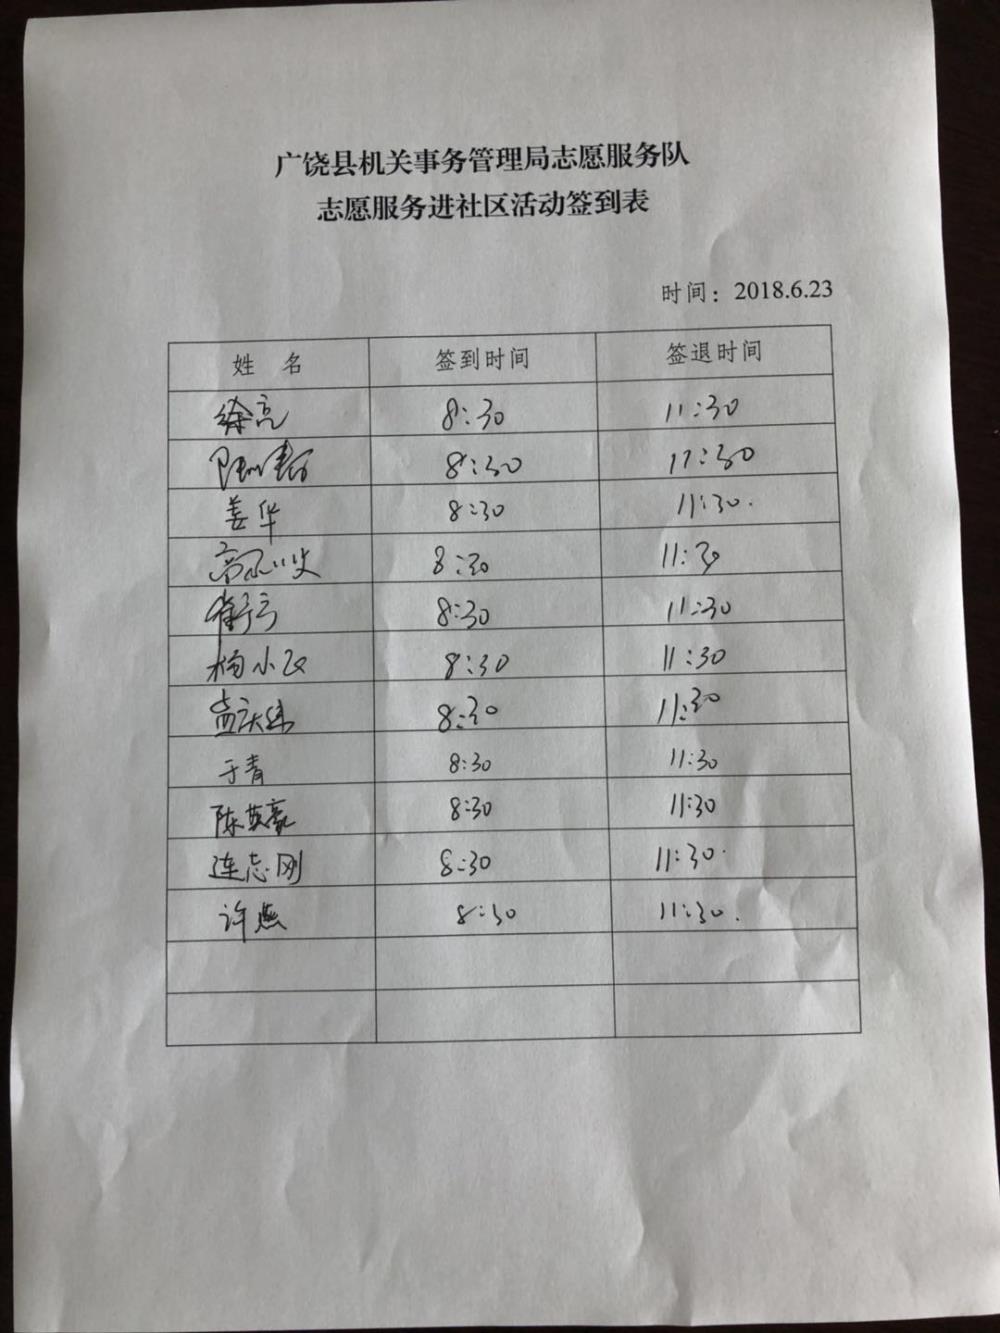 广饶县机关事务管理局志愿服务队
志愿服务进社区活动签到表
时间：2018.6.23
姓 名 签到时间 签退时间
徐亮 8:30 11:30
8:30 11:30
姜华 8:30 11:30.
8:30 11:30
8:30 11:30
杨小 8:30 11:30
孟庆 8:30 11:30
于青 8:30 11:30
陈英豪 8:30 11:30
连志刚 8:30 11:30.
许燕 8:30 11:30.